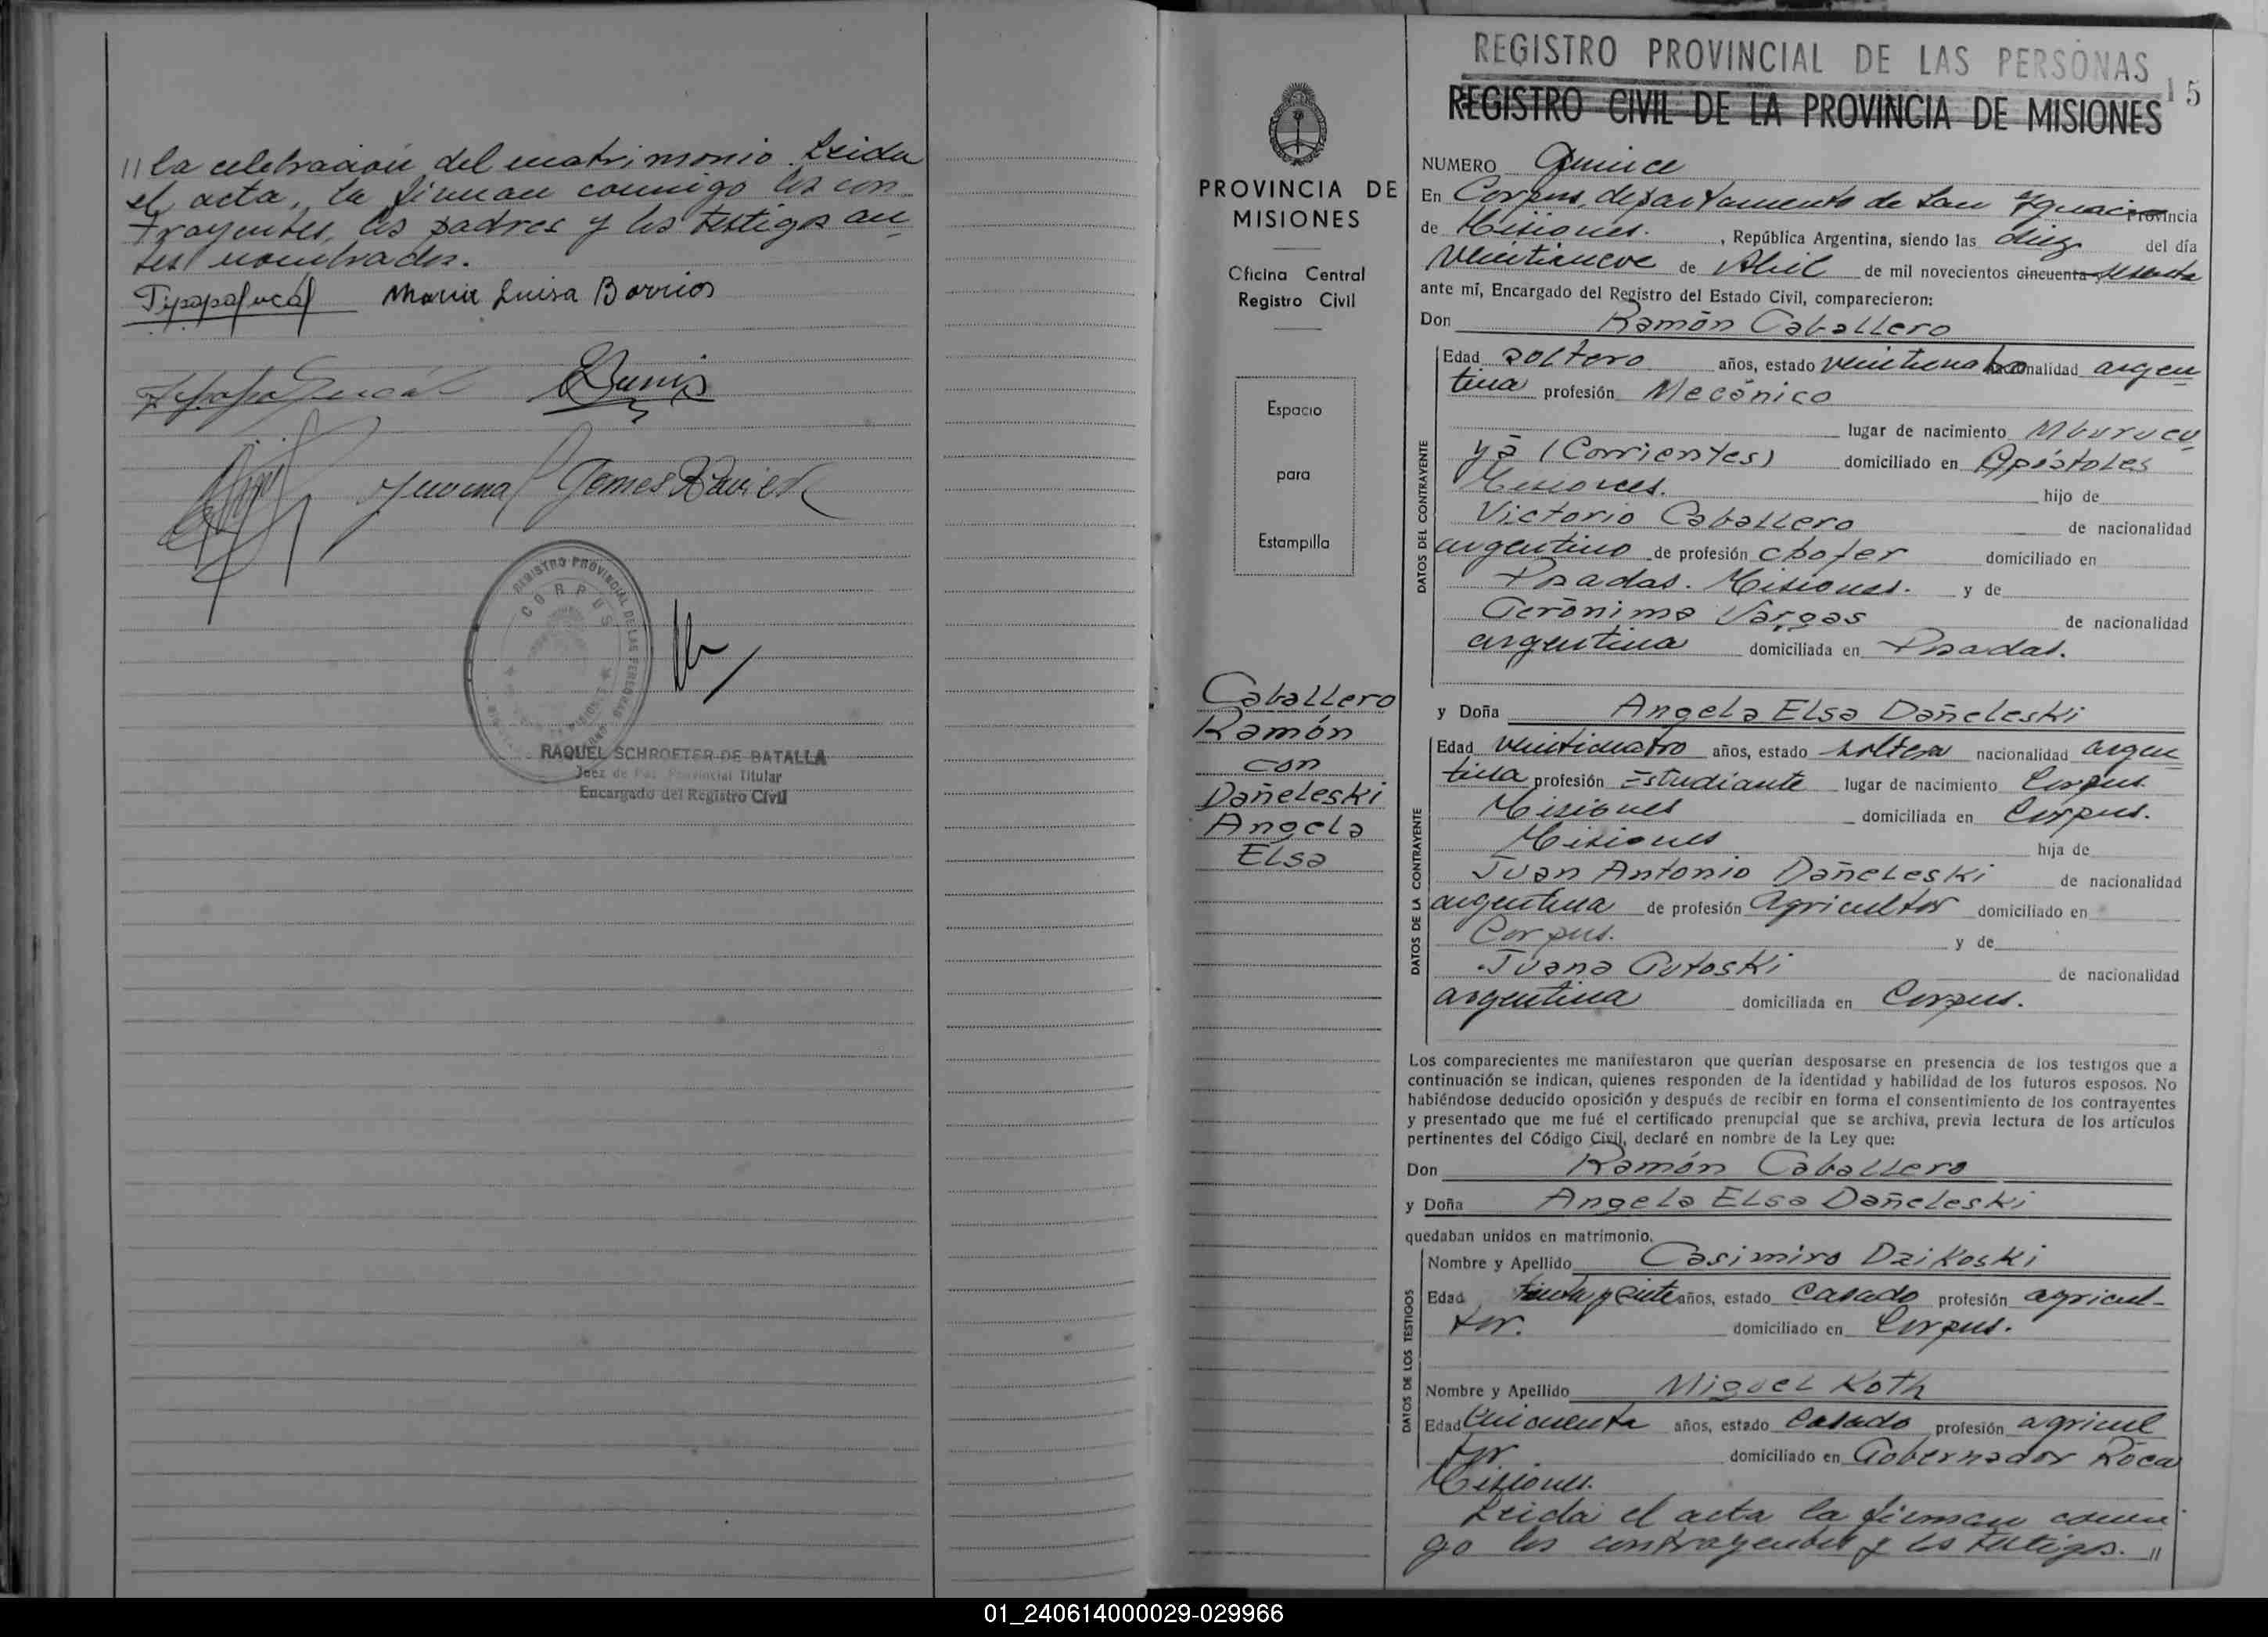 // la celebración del matrimonio. Leida
el acta, la firman conmigo los con-
trayentes, los padres y los testigos an-
tes nombrados.
Maria Luisa Barrios
REGISTRO PROVINCIAL DE LAS PERSONAS
CORPUS
RAQUEL SCHROETER DE BATALLA
Juez de Paz Provincial Titular
Encargado del Registro Civil
PROVINCIA DE
MISIONES
Oficina Central
Registro Civil
Espacio
para
Estampilla
Caballero
Ramón
con
Dañeleski
Angela
Elsa
REGISTRO PROVINCIAL DE LAS PERSONAS
15
REGISTRO CIVIL DE LA PROVINCIA DE MISIONES
NUMERO Quince
En Corpus, departamento de San Ignacio Provincia
de Misiones. , República Argentina, siendo las diez del día
veintinueve de Abil de mil novecientos cincuenta sesenta
ante mí, Encargado del Registro del Estado Civil, comparecieron:
Don Ramón Caballero
DATOS DEL CONTRAYENTE
Edad soltero años, estado nacionalidad argen
tina profesión Mecánico
lugar de nacimiento Mburucu
yá (Corrientes) domiciliado en Apóstoles
Misiones. hijo de
Victorio Caballero de nacionalidad
argentino de profesión chofer domiciliado en
Posadas. Misiones. y de
Gerónima Vargas de nacionalidad
argentina domiciliada en Posadas.
y Doña Angela Elsa Dañeleski
DATOS DE LA CONTRAYENTE
Edad veinticuatro años, estado soltera nacionalidad argen
tina profesión Estudiante lugar de nacimiento Corpus.
Misiones domiciliada en Corpus.
Misiones hija de
Juan Antonio Dañeleski de nacionalidad
argentina de profesión Agricultor domiciliado en
Corpus. y de
Juana Gutoski de nacionalidad
argentina domiciliada en Corpus.
Los comparecientes me manifestaron que querían desposarse en presencia de los testigos que a
continuación se indican, quienes responden de la identidad y habilidad de los futuros esposos. No
habiéndose deducido oposición y después de recibir en forma el consentimiento de los contrayentes
y presentado que me fué el certificado prenupcial que se archiva, previa lectura de los artículos
pertinentes del Código Civil, declaré en nombre de la Ley que:
Don Ramón Caballero
y Doña Angela Elsa Dañeleski
quedaban unidos en matrimonio.
DATOS DE LOS TESTIGOS
Nombre y Apellido Casimiro Dzikoski
Edad años, estado Casado profesión agricul-
tor. domiciliado en Corpus.
Nombre y Apellido Miguel Koth
Edad Cincuenta años, estado Casado profesión agricul
tor domiciliado en Gobernador Roca
Misiones.
Leida el acta la firman conmi
go los contrayentes y los testigos. //
01_240614000029-029966